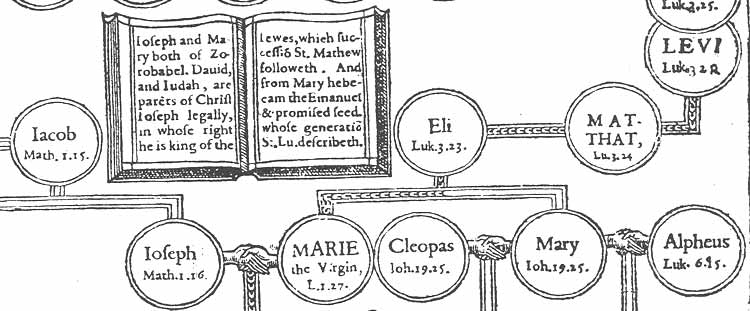 Luk.3.25.
LEVI
Luk.3 28
Ioseph and Ma-
ry both of Zo-
robabel. Dauid,
and Iudah, are
parẽts of Christ
Ioseph legally,
in whose right
he is king of the
Iewes, which suc-
cessiõ St. Mathew
followeth. And
from Mary hebe-
cam the Emanuel
& promised seed
whose generatiõ
S. Lu. describeth.
Iacob
Math. 1.15.
Eli
Luk.3.23.
MAT-
THAT,
Lu.3.24
Ioseph
Math.1.16.
MARIE
the Virgin,
L.1.27.
Cleopas
Ioh.19.25.
Mary
Ioh.19.25.
Alpheus
Luk. 6.15.